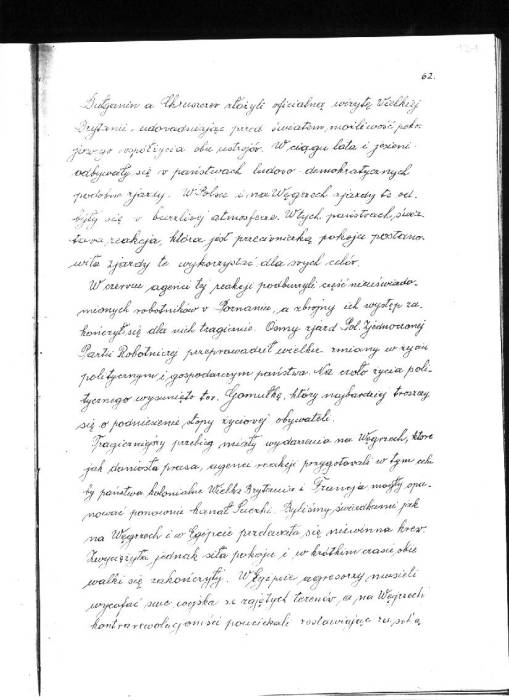 62.
Bułganin a Chruszczow złożyli oficialną wizytę Wielkiej
Brytanii - udowadniając przed światem, możliwość poko-
jowego współżycia obu ustrojów. W ciągu lata i jesieni
odbywały się w państwach ludowo - demokratycznych
podobne zjazdy. W Polsce i na Węgrzech zjazdy te od-
były się w burzliwej atmosferze. W tych państwach, świa-
towa reakcja, która jest przeciwniczką pokoju postano-
wiła zjazdy te wykorzystać dla swych celów.
W czerwcu agenci tej reakcji podburzyli część nieuświado-
mionych robotników w Poznaniu, a zbrojny ich występ za-
kończył się dla nich tragicznie. Ósmy zjazd Pol. Zjednoczonej
Partii Robotniczej przeprowadził wielkie zmiany w życiu
politycznym i gospodarczym państwa. Na czoło życia poli-
tycznego wysunięto tow. Gomułkę, który najbardziej troszczy
się o podniesienie stopy życiowej obywateli.
Tragiczniejszy przebieg miały wydarzenia na Węgrzech, które
jak doniosła prasa, agenci reakcji przygotowali w tym celu
by państwa kolonialne Wielka Brytania i Francja mogły opa-
nować ponownie kanał Sueski. Byliśmy świadkami jak
na Węgrzech i w Egipcie przelewała się niewinna krew.
Zwyciężyła jednak siła pokoju i w krótkim czasie obie
walki się zakończyły. W Egipcie agresorzy musieli
wycofać swe wojska ze zajętych terenów, a na Węgrzech
kontrarewolucjoniści pouciekali zostawiając za sobą